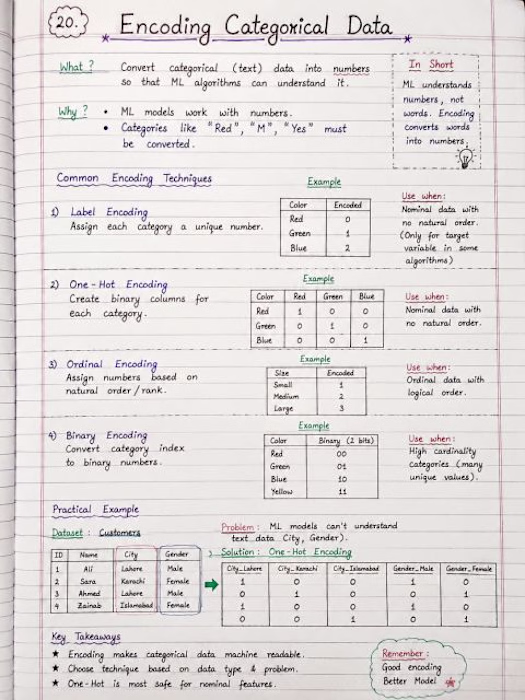 20.
Encoding Categorical Data
What ? Convert categorical (text) data into numbers
so that ML algorithms can understand it.
Why ? • ML models work with numbers.
• Categories like "Red", "M", "Yes" must
be converted.
In Short
ML understands
numbers, not
words. Encoding
converts words
into numbers.
Common Encoding Techniques
1) Label Encoding
Assign each category a unique number.
Example
Color Encoded
Red 0
Green 1
Blue 2
Use when:
Nominal data with
no natural order.
(Only for target
variable in some
algorithms)
2) One-Hot Encoding
Create binary columns for
each category.
Example
Color Red Green Blue
Red 1 0 0
Green 0 1 0
Blue 0 0 1
Use when:
Nominal data with
no natural order.
3) Ordinal Encoding
Assign numbers based on
natural order/rank.
Example
Size Encoded
Small 1
Medium 2
Large 3
Use when:
Ordinal data with
logical order.
4) Binary Encoding
Convert category index
to binary numbers.
Example
Color Binary (2 bits)
Red 00
Green 01
Blue 10
Yellow 11
Use when:
High cardinality
categories (many
unique values).
Practical Example
Dataset: Customers
ID Name City Gender
1 Ali Lahore Male
2 Sara Karachi Female
3 Ahmed Lahore Male
4 Zainab Islamabad Female
Problem: ML models can't understand
text data City, Gender).
Solution: One-Hot Encoding
City_Lahore City_Karachi City_Islamabad Gender_Male Gender_Female
1 0 0 1 0
0 1 0 0 1
1 0 0 1 0
0 0 1 0 1
Key Takeaways
★ Encoding makes categorical data machine readable.
★ Choose technique based on data type & problem.
★ One-Hot is most safe for nominal features.
Remember:
Good encoding
Better Model